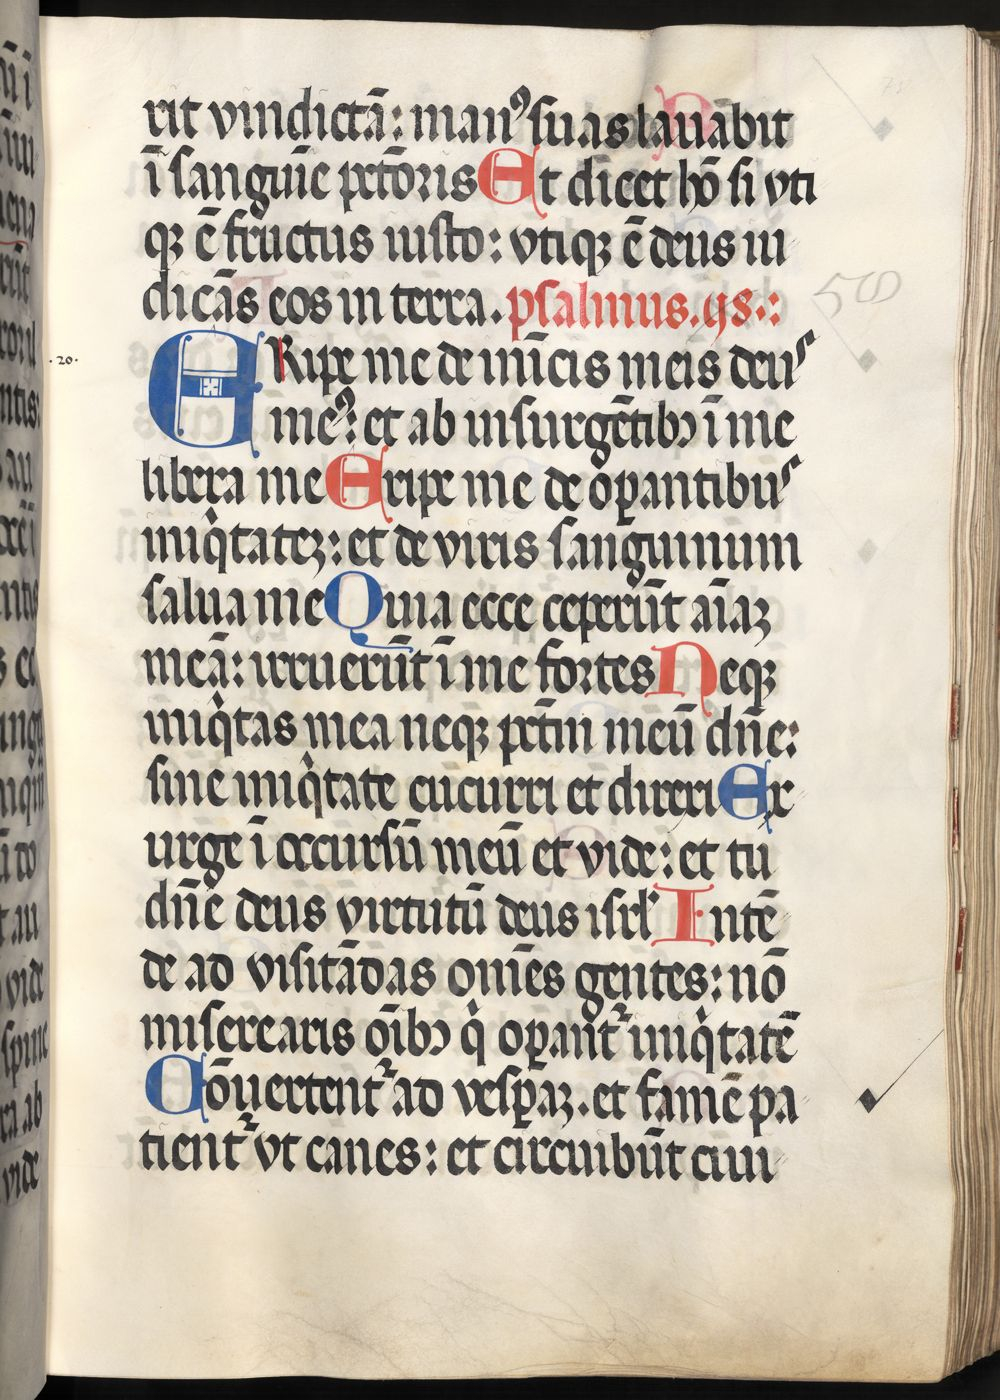 rit vindictā: manꝰ suas lauabit
ī sanguīe pctōꝛis Et dicet hō si vti
qꝫ ē fructus iusto: vtiqꝫ ē deus iu
dicās eos in terra. psalmus.98.:
.20.
ERipe me de inīcis meis deus
meꝰ: et ab insurgētibꝫ ī me
libera me Eripe me de oꝑantibus
iniqͥtateꝫ: et de viris sanguinum
salua me Quia ecce ceperūt aīaꝫ
meā: irruerūt ī me foꝛtes Neqꝫ
iniqͥtas mea neqꝫ pctm̄ meū dn̄e:
sine iniqͥtate cucurri et direxi Ex
urge ī occursū meū et vide: et tu
dn̄e deus virtutū deus isrl̓ Intē
de ad visitādas omēs gentes: nō
miserearis oībꝫ qͥ oꝑantᷣ iniqͥtatē
Cōuertentᷣ ad vesꝑaꝫ. et famē pa
tientᷣ vt canes: et circuibūt ciui
58